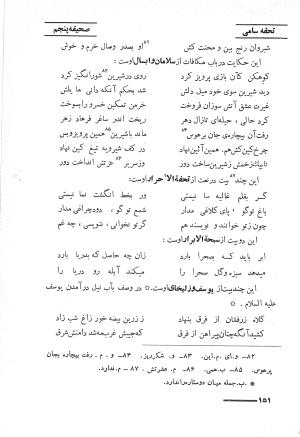 تحفه سامی
صحیفه پنجم
شیروان رنج بین و محنت کش
او بصدر وصال خرم و خوش
این حکایت درباب مکافات از سلامان و ابسال اوست :
کوهکن کآن بازی پرویز کرد
روی در شیرین شورانگیز کرد
دید شیرین سوی خود میل دلش
شد بحکم آنکه دانی مایلش
غیرت عشق آتش سوزان فروخت
خرمن تمکین خسرو را بسوخت
کرد حالی ، حیلهٔ تازال دهر
ریخت اندر ساغر فرهاد زهر
رفت آن بیچاره‌ی جان پرهوس
ماند باشیرین همین پرویز و بس
چرخ کین کش هم، همین آئین نهاد
در کف شیرویه تیغ کین نهاد
تا بیک زخمش ز شیرین ساخت دور
وز سریر عزتش انداخت دور
این چند بیت در نعت از تحفة الاحرار اوست:
گر بقلم غالیه سا نیستی
بر خط انگشت نما نیستی
باغ توگو ، پای کلاغی مدار
شمع توگو ، دود چراغی مدار
چون ز تو خوانند و نویسند هم
گر تو نخوانی ، ننویسی ، چه غم
این دو بیت از سبحة الابرار اوست :
ابر باید که بصحرا بارد
زان چه حاصل که بدریا بارد
میدهد سبزه و گل صحرا را
میکند آبله رو دریا را
این چند بیت از یوسف و زلیخای اوست در وصف بآب نیل درآمدن یوسف
علیه السلام .
کلاه زرفشان از فرق بنهاد
ز زرین بیضه خور زاغ شب زاد
کشید آنگه چنان پیراهن از فرق
که جیبش غرب شد دامنش شرق
۸۲ - و.ای. م. این. ۸۳ - و. شکرریز. ۸۴ - و. م. رفت بیچاره بجان
پرهوس. ۸۵ - ب. همی. ۸۶ - م. عشرتش. ۸۷ - م. ندارد.
*. ب. جمله میان دو ستاره را ندارد.
۱۵۱